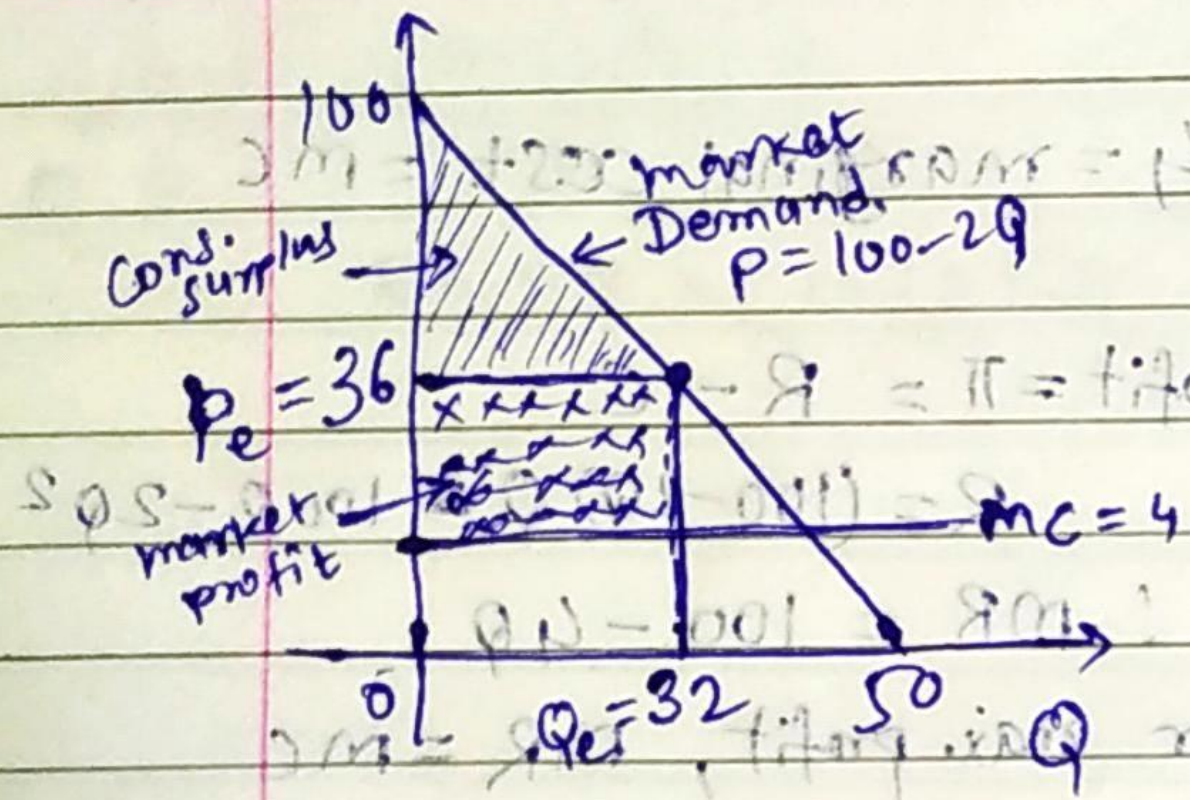 100
market
Demand.
P = 100-2Q
Cons.
surplus
Pe = 36
market
profit
MC = 4
0
Qe = 32
50
Q